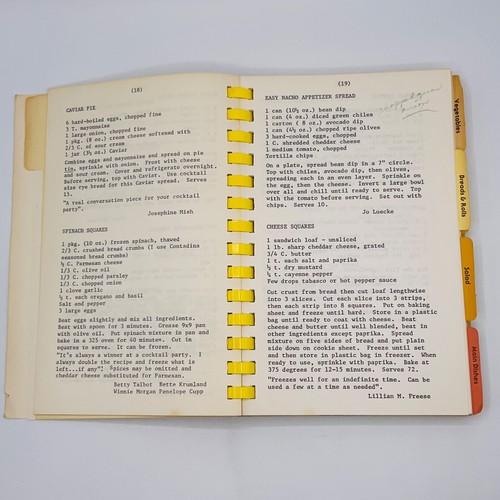 (18)
CAVIAR PIE
6 hard-boiled eggs, chopped fine
3 T. mayonnaise
1 large onion, chopped fine
1 pkg. (8 oz.) cream cheese softened with
2/3 C. of sour cream
1 jar (3½ oz.) Caviar
Combine eggs and mayonnaise and spread on pie
tin, sprinkle with onion. Frost with cheese
and sour cream. Cover and refrigerate overnight.
Before serving, top with Caviar. Use cocktail
size rye bread for this Caviar spread. Serves
15.
"A real conversation piece for your cocktail
party".
Josephine Mish
SPINACH SQUARES
1 pkg. (10 oz.) frozen spinach, thawed
2/3 C. crushed bread crumbs (I use Contadina
seasoned bread crumbs)
½ C. Parmesan cheese
1/3 C. olive oil
1/3 C. chopped parsley
1/3 C. chopped onion
1 clove garlic
½ t. each oregano and basil
Salt and pepper
3 large eggs
Beat eggs slightly and mix all ingredients.
Beat with spoon for 3 minutes. Grease 9x9 pan
with olive oil. Put spinach mixture in pan and
bake in a 325 oven for 40 minutes. Cut in
squares to serve. It can be frozen.
"It's always a winner at a cocktail party. I
always double the recipe and freeze what is
left...if any"! Spices may be omitted and
cheddar cheese substituted for Parmesan.
Betty Talbot Bette Krumland
Winnie Morgan Penelope Cupp
(19)
EASY NACHO APPETIZER SPREAD
1 can (10½ oz.) bean dip
1 can (4 oz.) diced green chiles
1 carton ( 8 oz.) avocado dip
1 can (4½ oz.) chopped ripe olives
3 hard-cooked eggs, chopped
1 C. shredded cheddar cheese
1 medium tomato, chopped
Tortilla chips
On a plate, spread bean dip in a 7" circle.
Top with chiles, avocado dip, then olives,
spreading each in an even layer. Sprinkle on
the egg, then the cheese. Invert a large bowl
over all and chill until ready to serve. Top
with the tomato before serving. Set out with
chips. Serves 10.
Jo Luecke
CHEESE SQUARES
1 sandwich loaf - unsliced
1 lb. sharp cheddar cheese, grated
3/4 C. butter
1 t. each salt and paprika
½ t. dry mustard
¼ t. cayenne pepper
Few drops tabasco or hot pepper sauce
Cut crust from bread then cut loaf lengthwise
into 3 slices. Cut each slice into 3 strips,
then each strip into 8 squares. Put on baking
sheet and freeze until hard. Store in a plastic
bag until ready to coat with cheese. Beat
cheese and butter until well blended, beat in
other ingredients except paprika. Spread
mixture on five sides of bread and put plain
side down on cookie sheet. Freeze until set
and then store in plastic bag in freezer. When
ready to use, sprinkle with paprika. Bake at
375 degrees for 12-15 minutes. Serves 72.
"Freezes well for an indefinite time. Can be
used a few at a time as needed".
Lillian M. Freese
Vegetables
Breads & Rolls
Salad
Main Dishes